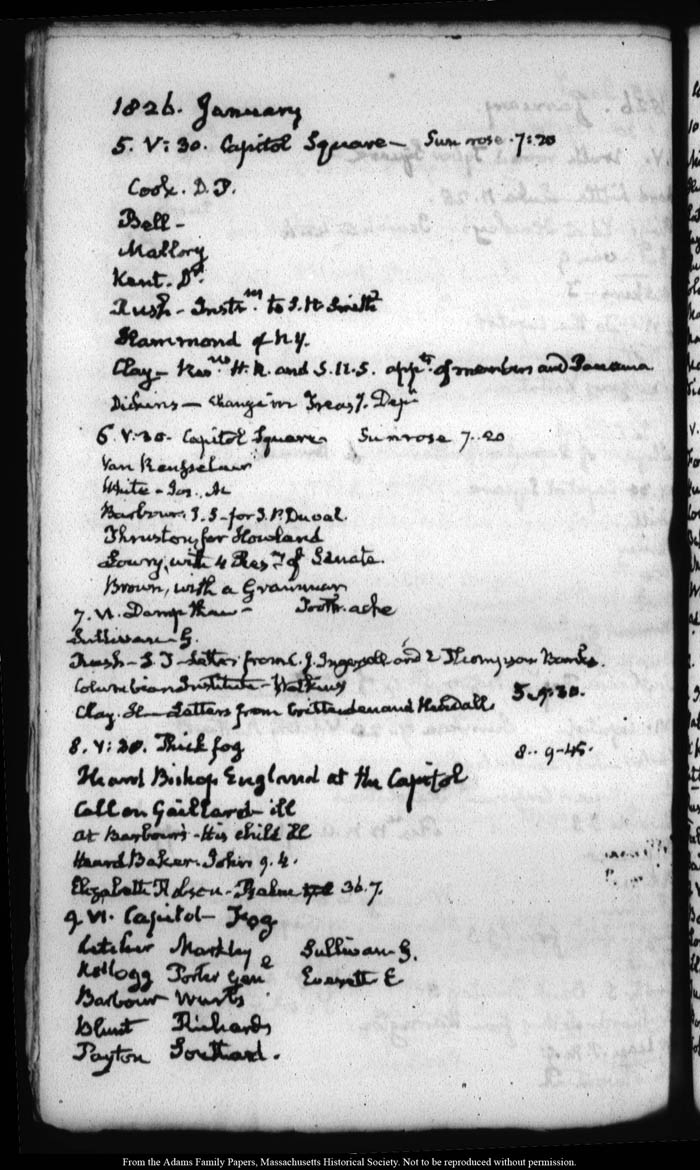 1826. January
5. V:30. Capitol Square — Sun rose. 7:20
Cook. D. P.
Bell —
Mallory
Kent. Dr.
Rush — Instrns. to S. H. Smith
Hammond of N.Y.
Clay — Resns H.R. and appts. of members and Panama
Dickins — change in Treasy. Dept
6. V:30. Capitol Square Sunrose 7..20
Van Rensselaer
White — Jos. M
Barbour, J. S. for Duval.
Thruston, for Howland
Lowry, with 4 Ress. of Senate.
Brown, with a Grammar
7. VI. Damp thaw — Tooth-ache
Sullivan G.
Rush — Letter from C. J. Ingersoll and 2 Thompson Banks.
Columbian Institute — Watkins
Clay. H — Letters from Crittenden and Kendall 5..9:30.
8. V:30. Thick fog 8.. 9-45.
Heard Bishop England at the Capitol
Call on Gaillard — ill
at Barbour's — His child ill
Heard Baker. John 9. 4.
Elizabeth — Psalm 36. 7.
9. VI. Capitol — Fog
Letcher Markley Sullivan G.
Kellogg Porter Genl Everett E
Barbour Wurts
Blunt Richards
Payton Southard.
From the Adams Family Papers, Massachusetts Historical Society. Not to be reproduced without permission.